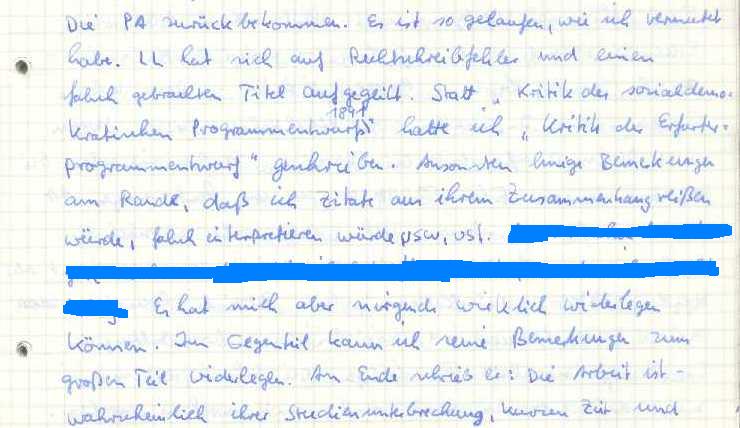 Die PA zurückbekommen. Es ist so gelaufen, wie ich vermutet
habe. LL hat sich auf Rechtschreibfehler und einen
falsch gebrachten Titel aufgegeilt. Statt „Kritik des sozialdemo-
kratischen Programmentwurfs 1891" hatte ich „Kritik des Erfurter-
programmentwurf" geschrieben. Ansonsten einige Bemerkungen
am Rande, daß ich Zitate aus ihrem Zusammenhang reißen
würde, falsch interpretieren würde usw, usf.
Er hat mich aber nirgends wirklich widerlegen
können. Im Gegenteil kann ich seine Bemerkungen zum
großen Teil widerlegen. Am Ende schrieb er: Die Arbeit ist -
wahrscheinlich ihrer Studienunterbrechung, kurzen Zeit und